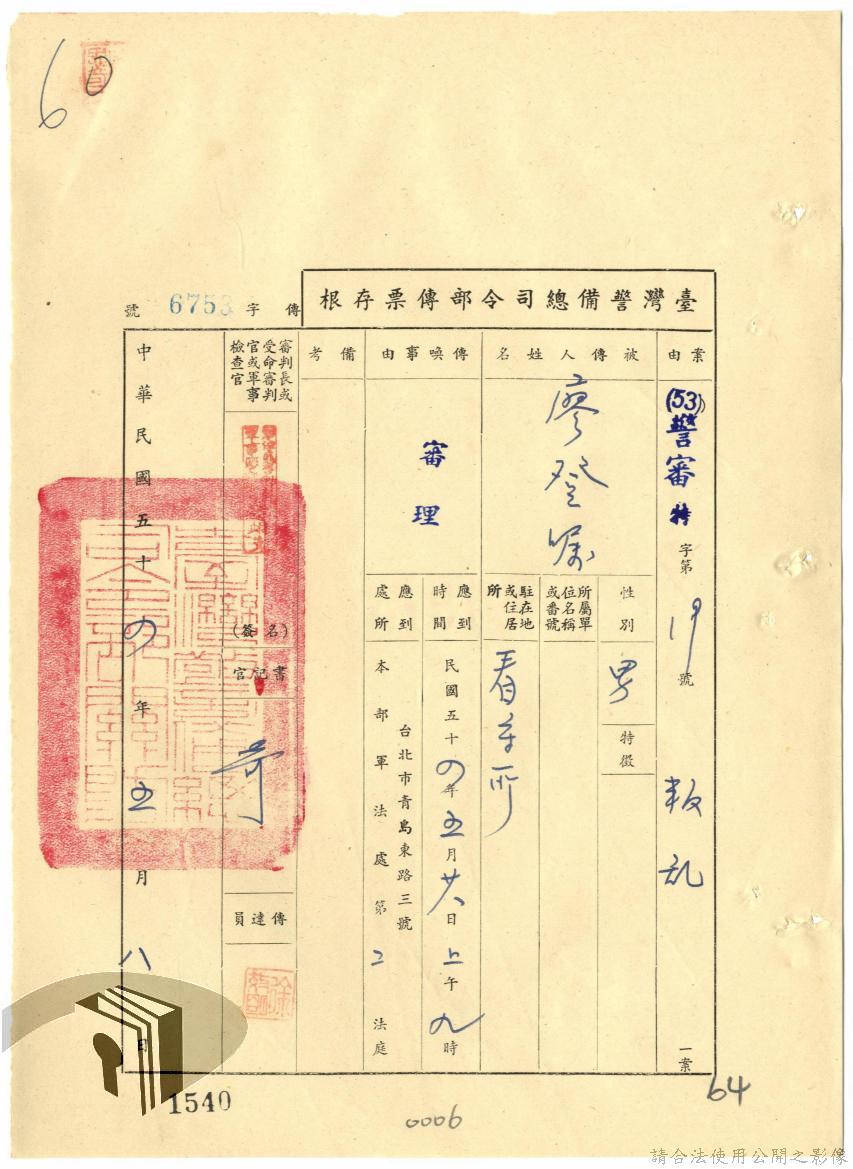 60
臺灣警備總司令部傳票存根
傳字 6753 號
案由
(53)警審特字第 號 叛乱 一案
被傳人姓名
廖登
性別
男
特徵
所屬單位名稱或番號
駐在地或住居所
看守所
傳喚事由
審理
應到時間
民國五十四年五月廿八日上午九時
應到處所
台北市青島東路三號
本部軍法處第2法庭
備考
審判長或受命審判官或軍事檢查官
(簽名)
書記官
傳達員
中華民國五十四年五月八日
1540
0006
64
請合法使用公開之影像